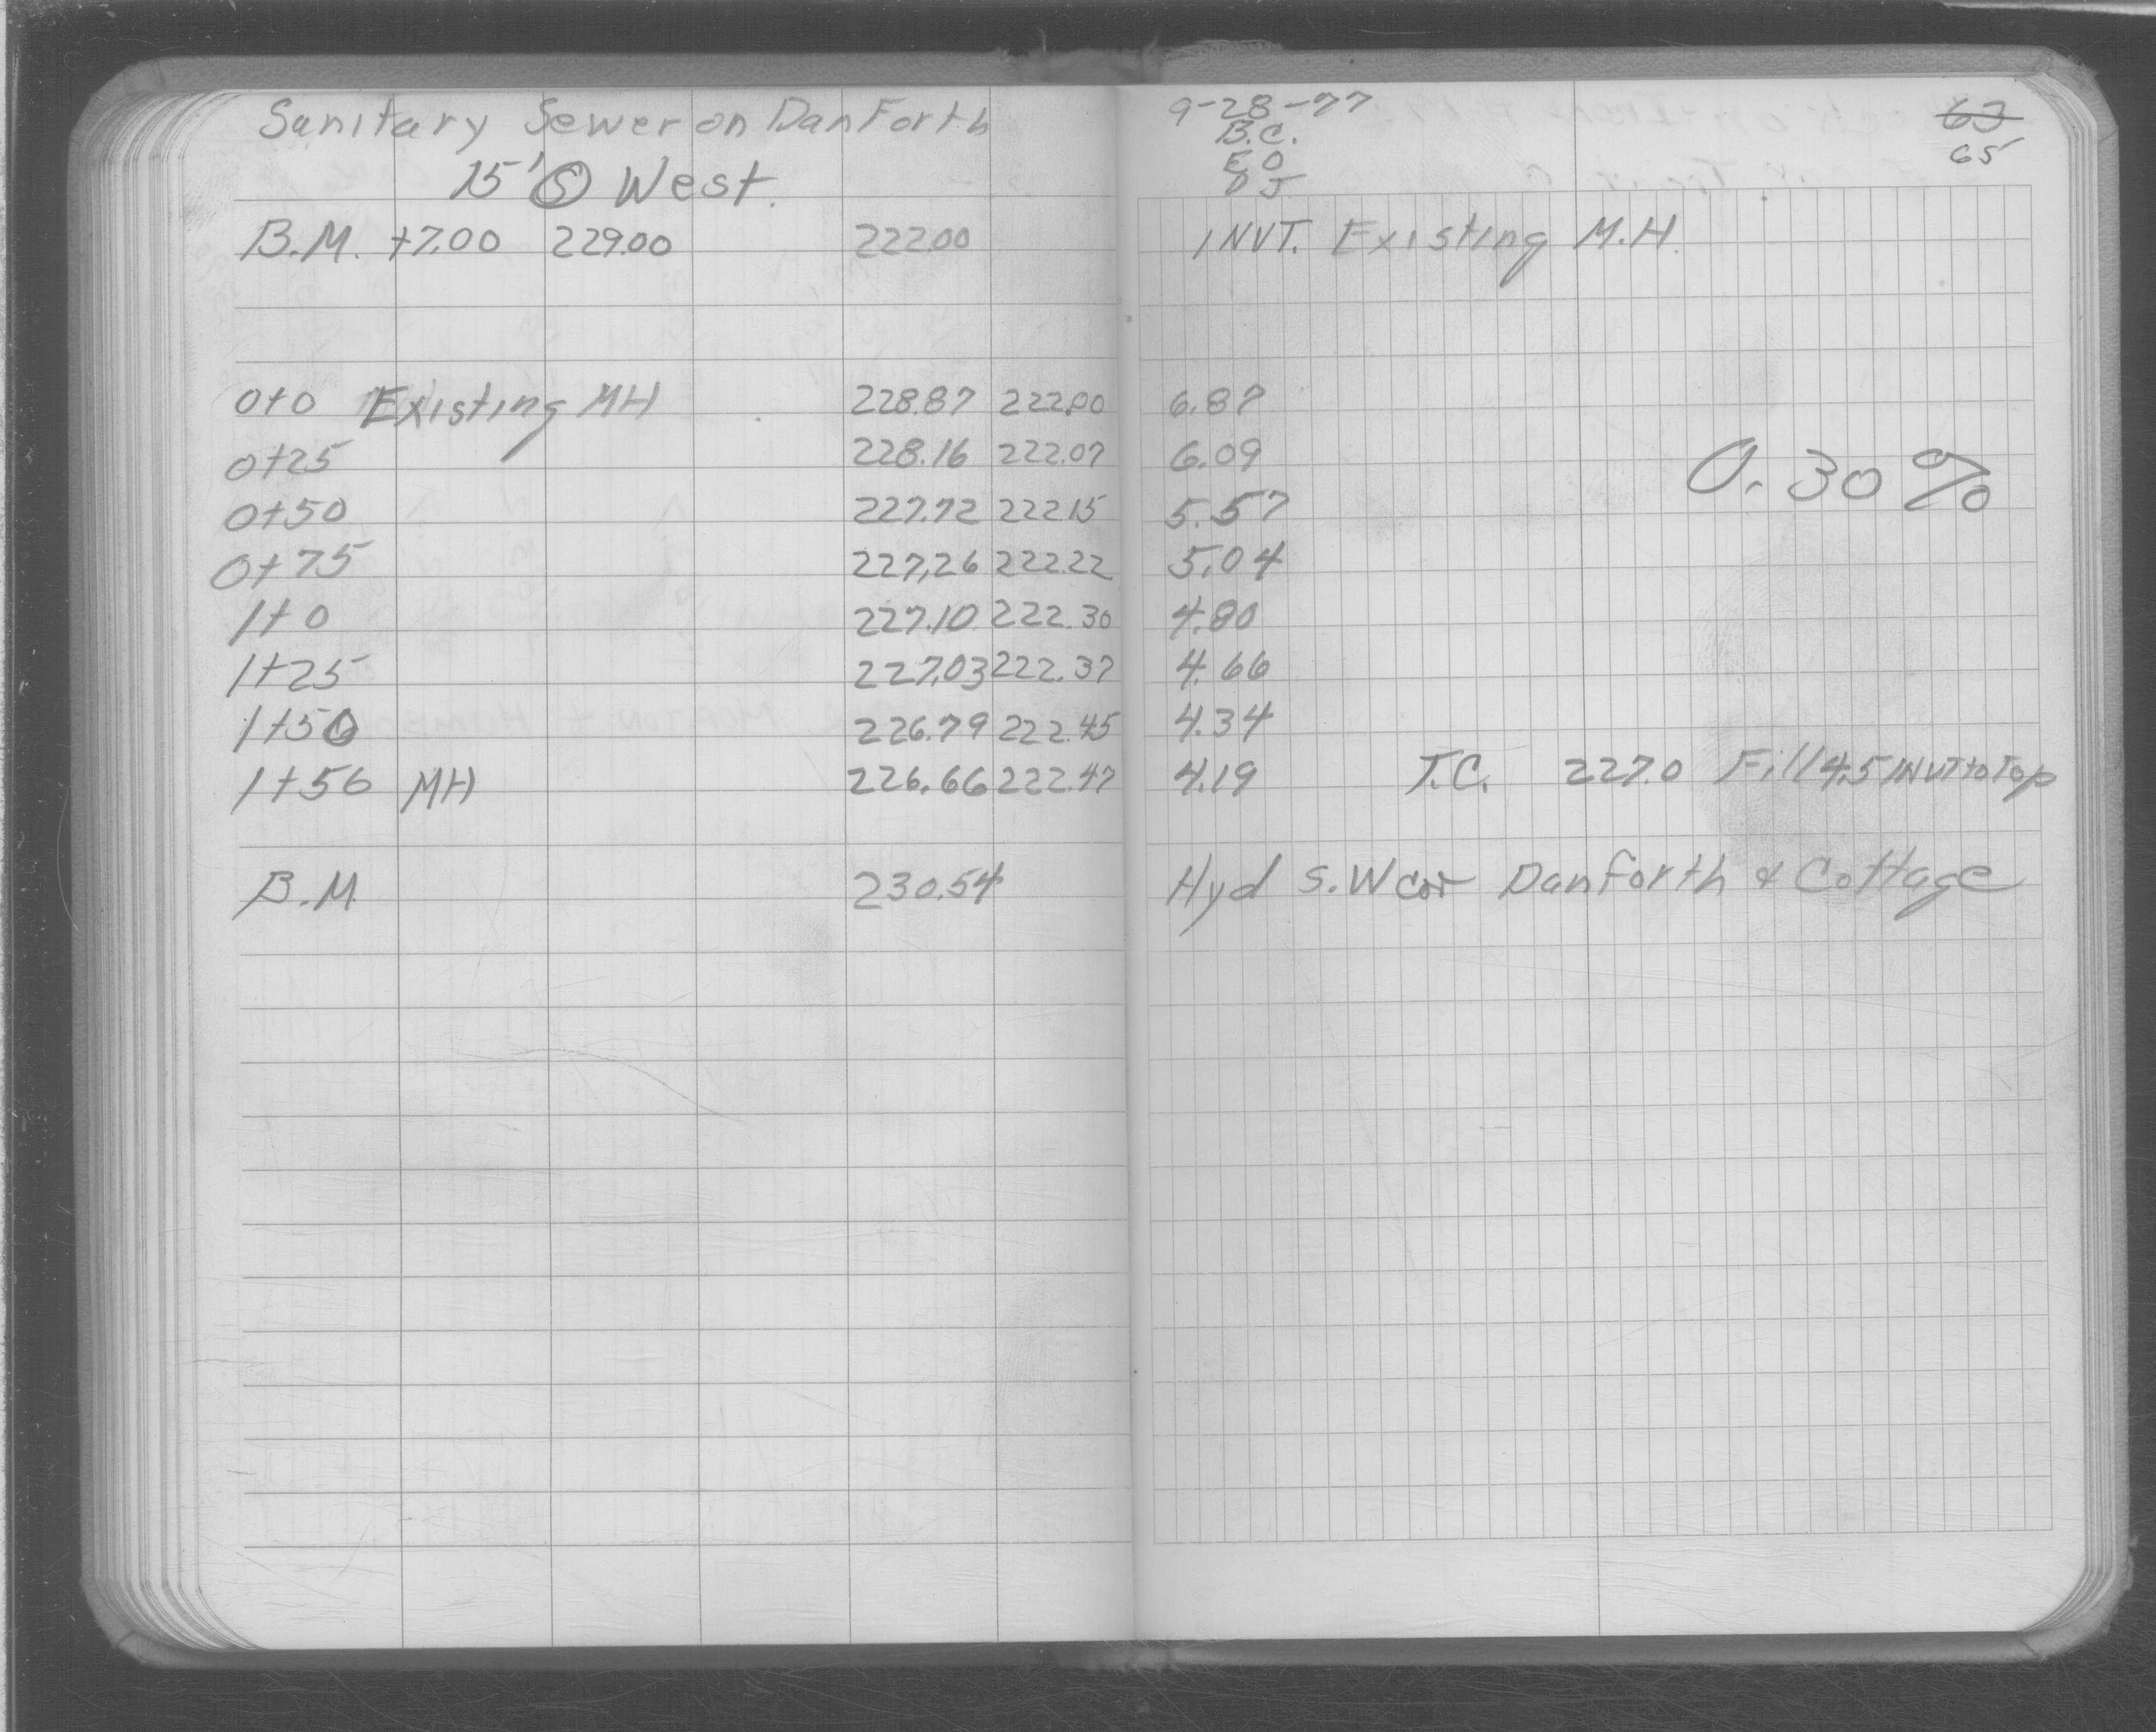 Sanitary Sewer on DanForth
15' Ⓢ West.
9-28-77
B.C.
E O
D J
63
65
B.M. +7.00 229.00 222.00 INVT. Existing M.H.
0+0 Existing MH 228.87 222.00 6.87
0+25 228.16 222.07 6.09
0.30%
0+50 227.72 222.15 5.57
0+75 227.26 222.22 5.04
1+0 227.10 222.30 4.80
1+25 227.03 222.37 4.66
1+50 226.79 222.45 4.34
1+56 MH 226.66 222.47 4.19 T.C. 227.0 Fill 4.5 INVT to Top
B.M. 230.54 Hyd S.W cor DanForth & Cottage